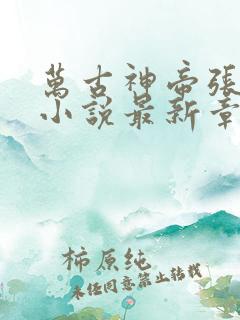 萬古神帝張
小說最新章
柿原纯
未经同意禁止转载